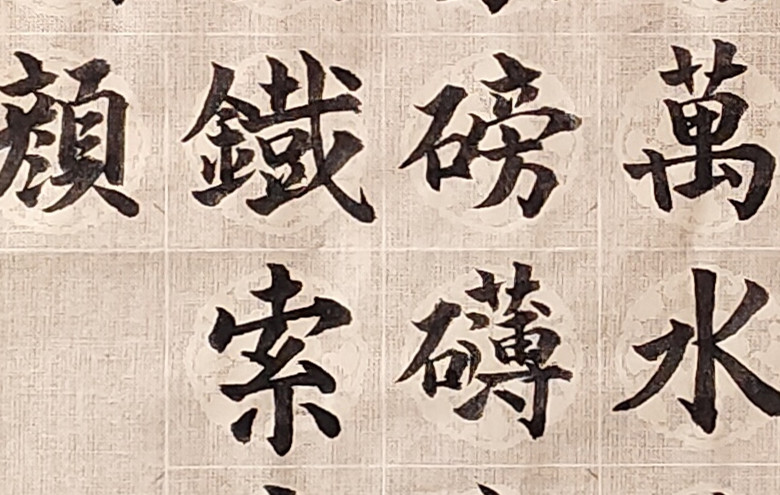 萬水
磅礴
鐵索
顏